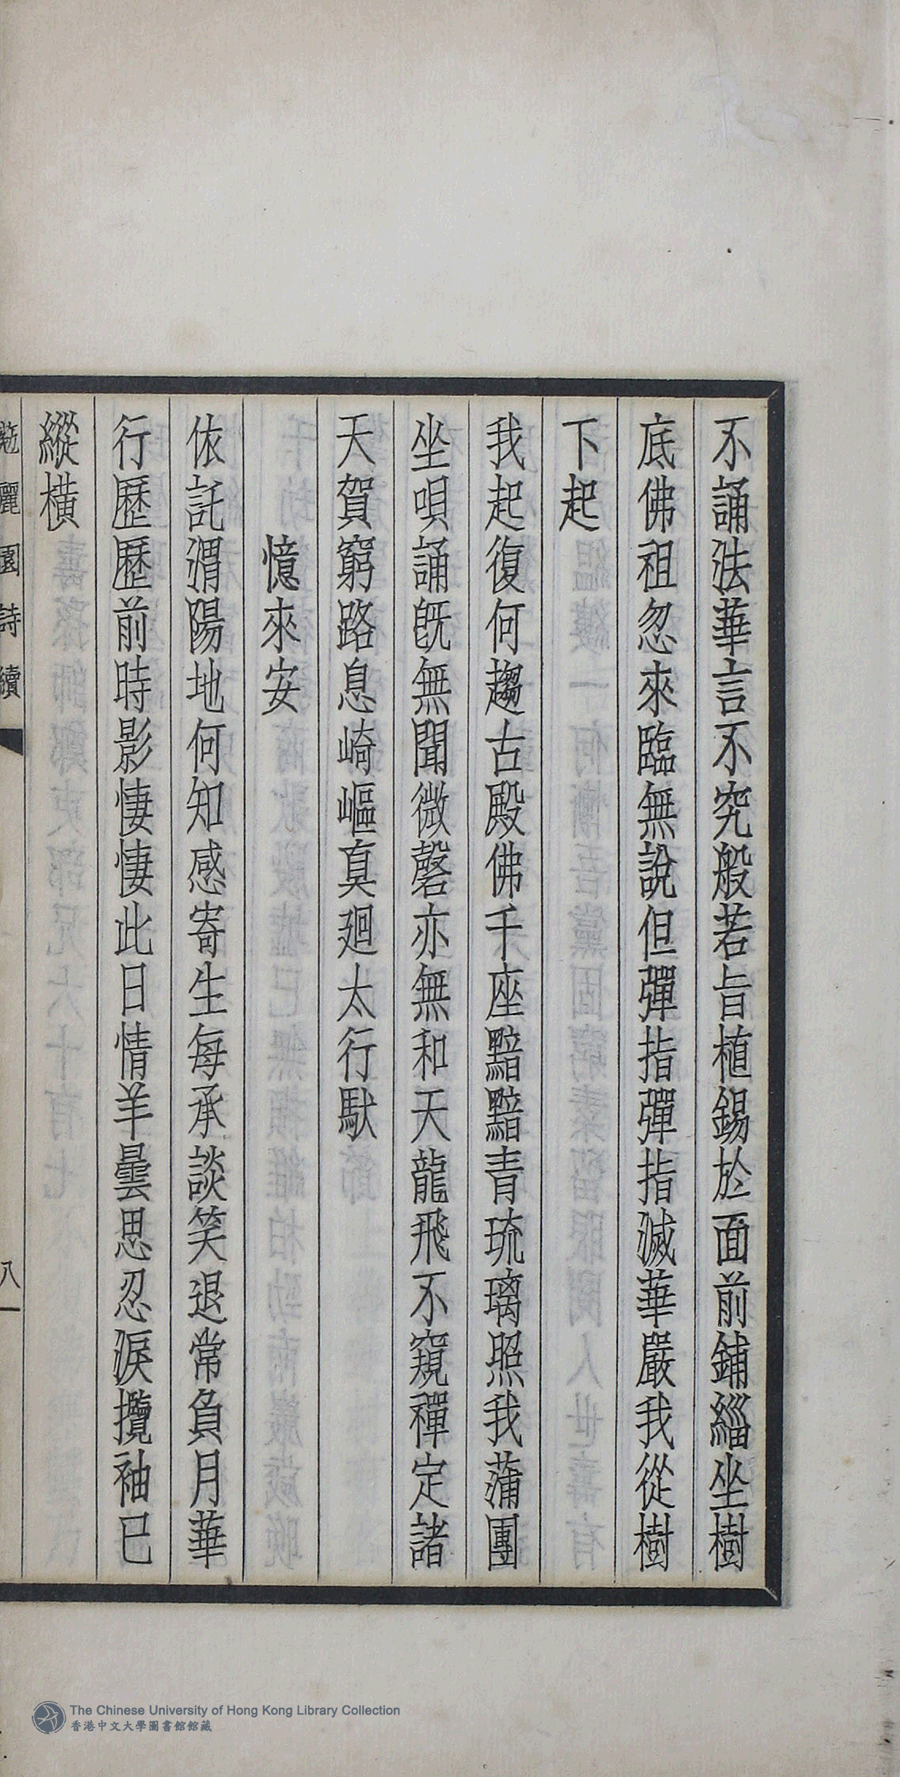 不誦法華言不究般若旨植錫於面前鋪緇坐樹
底佛祖忽來臨無說但彈指彈指滅華嚴我從樹
下起
我起復何趨古殿佛千座黯黯青琉璃照我蒲團
坐唄誦旣無聞微磬亦無和天龍飛不窺禪定諸
天賀窮路息崎嶇真廻太行馱
憶來安
依託渭陽地何知感寄生每承談笑退常負月華
行歷歷前時影悽悽此日情羊曇思忍淚攬袖已
縱橫
麗園詩續
八
The Chinese University of Hong Kong Library Collection
香港中文大學圖書館館藏